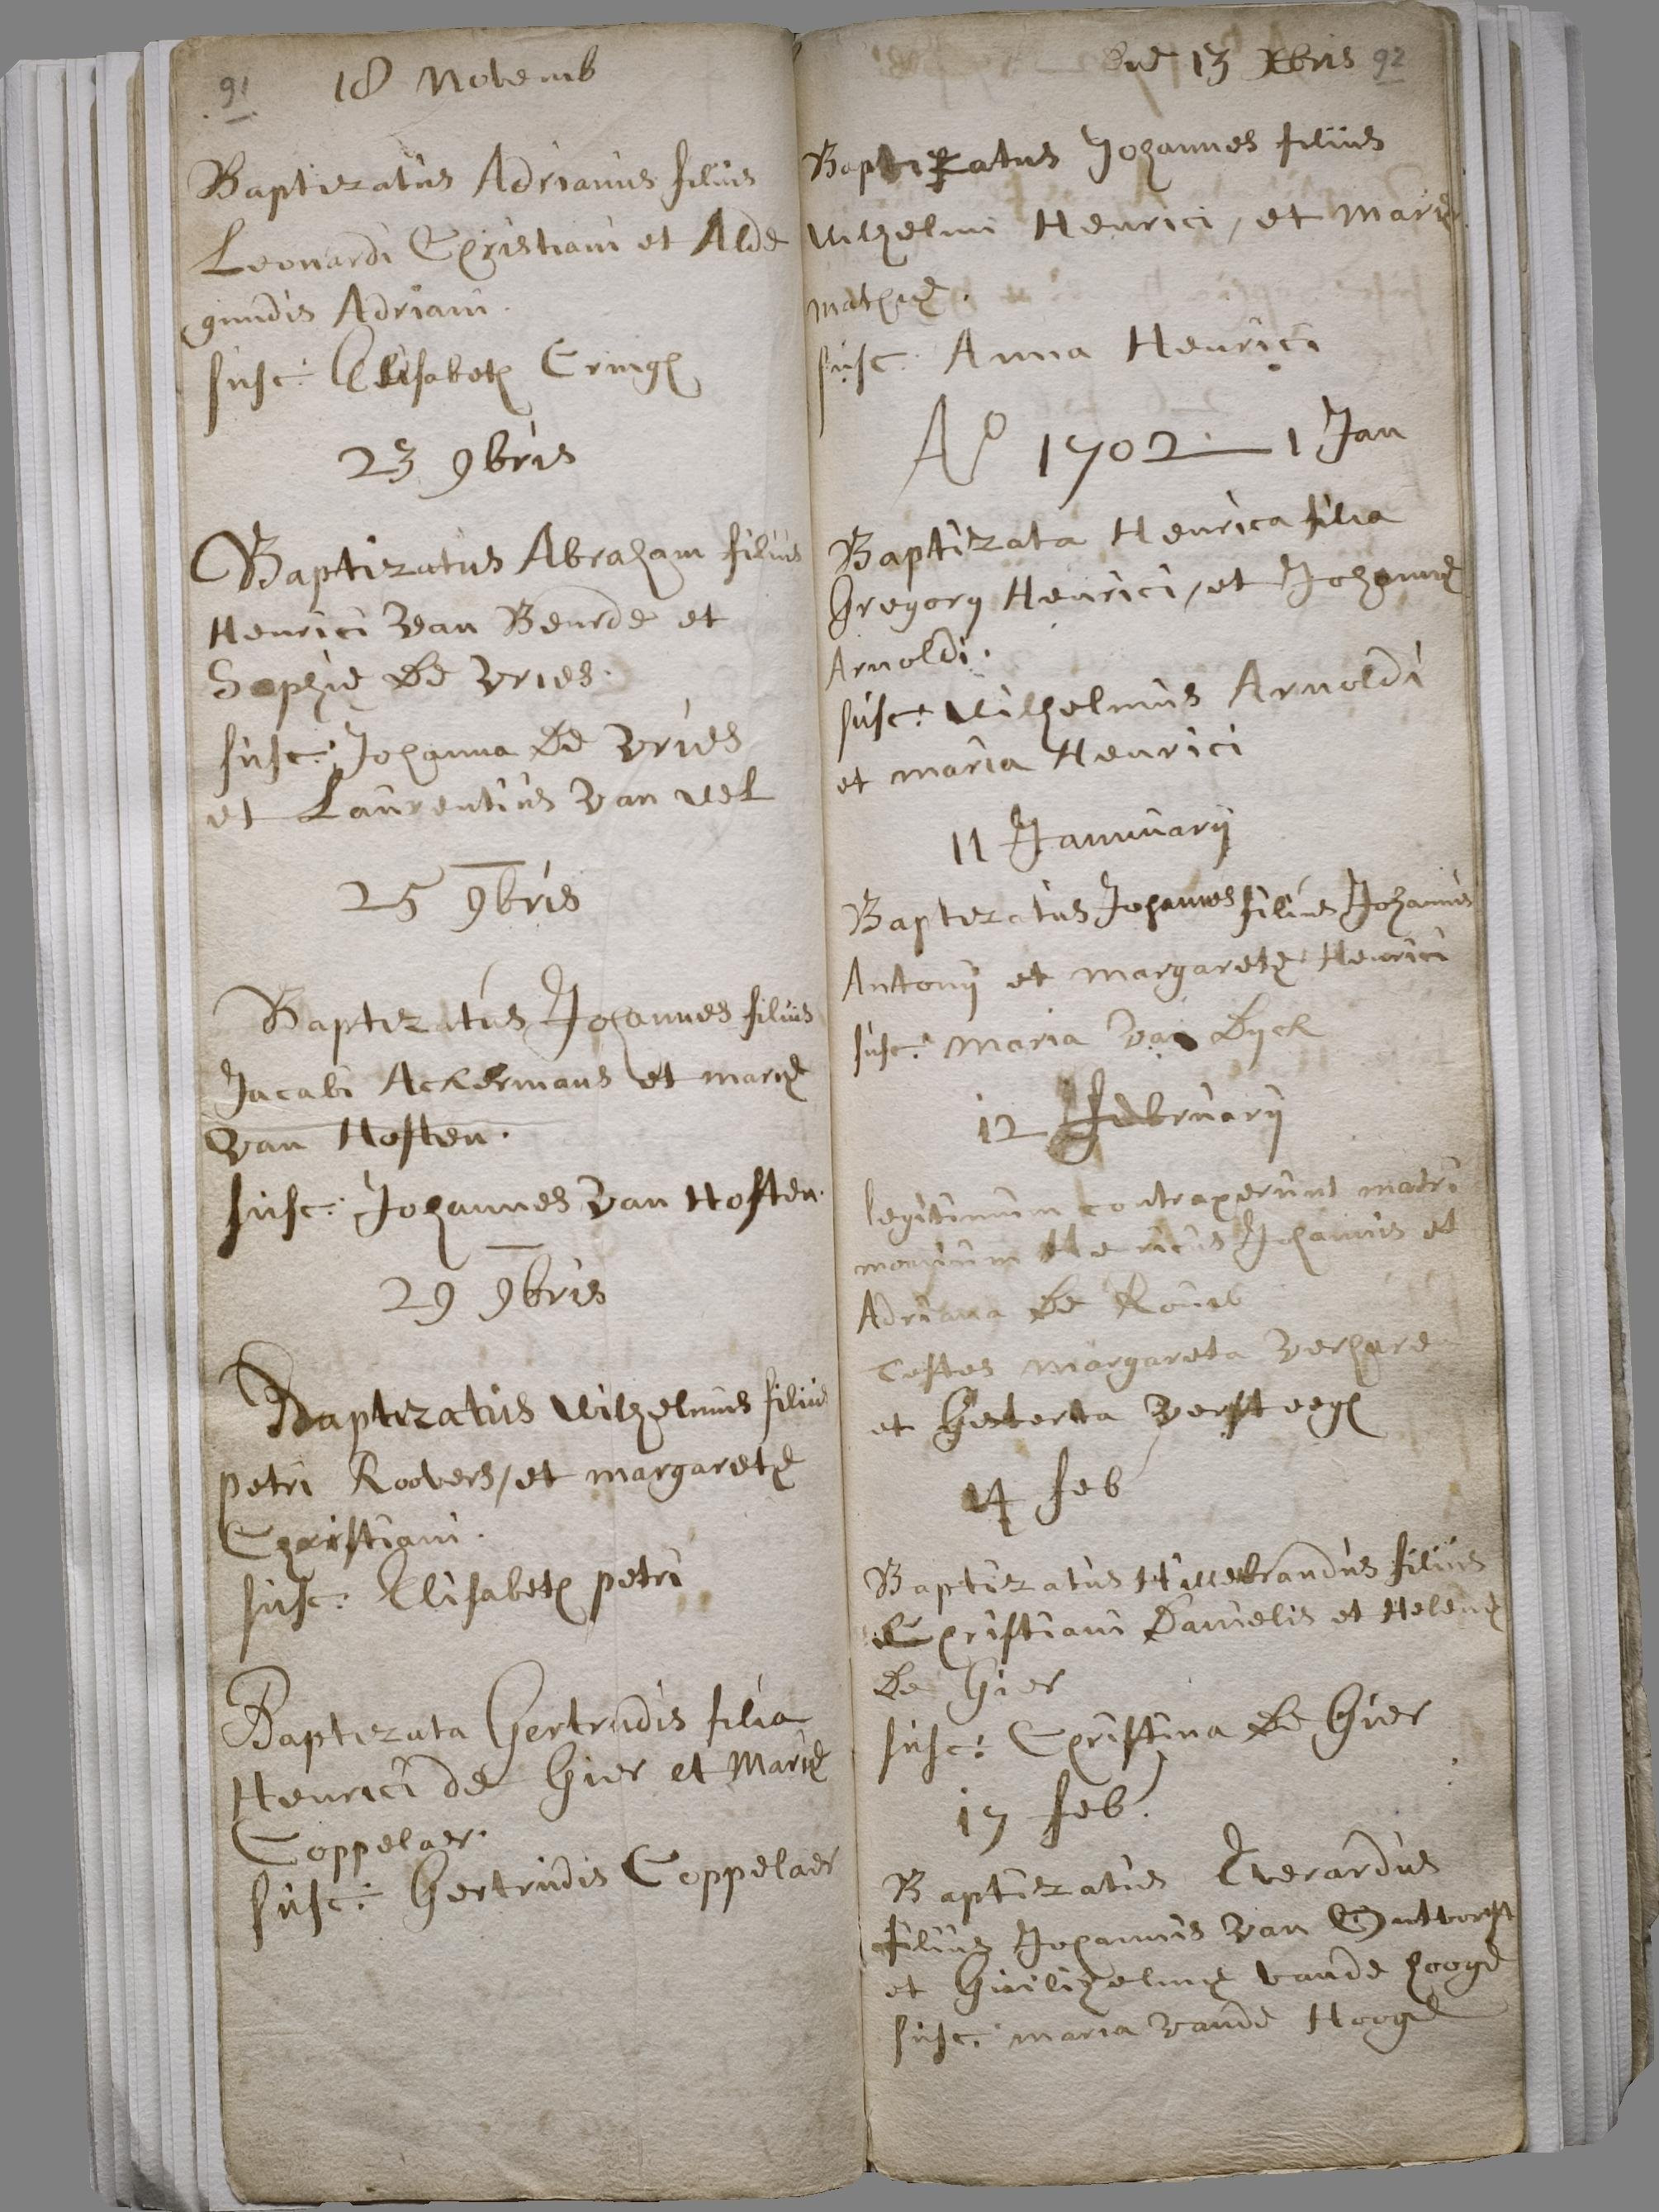 91
18 Novemb
Baptizatus Adrianus filius
Leonardi Christiani et Alde
gundis Adriani.
susc: Elisabeth Cringh
23 9bris
Baptizatus Abraham filius
Henrici Van Beurde et
Sophie De Vries.
susc: Johanna De Vries
et Laurentius Van Uel
25 9bris
Baptizatus Johannes filius
Jacabi Ackermans et marie
Van Hoften.
susc: Johannes Van Hoften.
29 9bris
Baptizatus Wilhelmus filius
petri Roovers, et margarete
Christiani.
susc: Elisabeth petri
Baptizata Gertrudis filia
Henrici de Gier et Marie
Coppelaer.
susc: Gertrudis Coppelaer
Die 13 Xbris 92
Baptizatus Johannes filius
Wilhelmi Henrici, et Marie
susc: Anna Henrici
Ao 1702 — 1 Jan
Baptizata Henrica filia
Gregory Henrici, et Johanne
Arnoldi.
susc: Wilhelmus Arnoldi
et maria Henrici
11 Januuarij
Baptizatus Johannes filius Johannis
Antonij et margarete Henrici
susc: Maria Van Dyck
12 february
legitimum contraxerunt matri
monium Henricus Johannis et
Adriana De
Testes margareta
et Versteegh
14 feb
Baptizatus Hillebrandus filius
Christiani Danielis et Helene
De Gier
susc: Christina De Gier
17 feb.
Baptizatus Everardus
filius Johannis Van Ontvorst
et Guilihelme vande hooge
susc: maria Vande Hooge